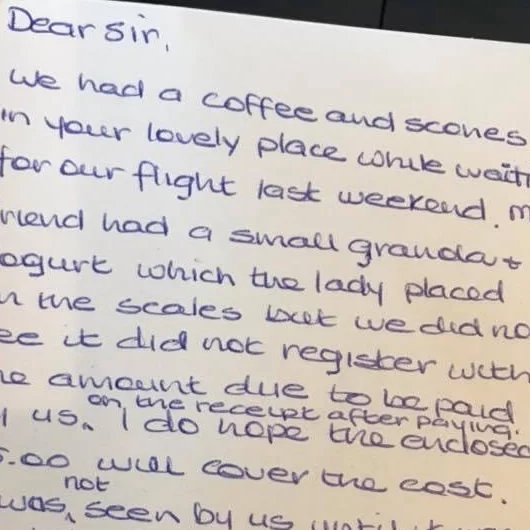 Dear Sir,
we had a coffee and scones
in your lovely place while waiti
for our flight last weekend. m
riend had a small granda +
ogurt which the lady placed
n the scales but we did no
ee it did not register with
he amount due to be paid
on the receipt after paying.
y us. I do hope the enclosed
5.00 will cover the cost.
not
was seen by us until it